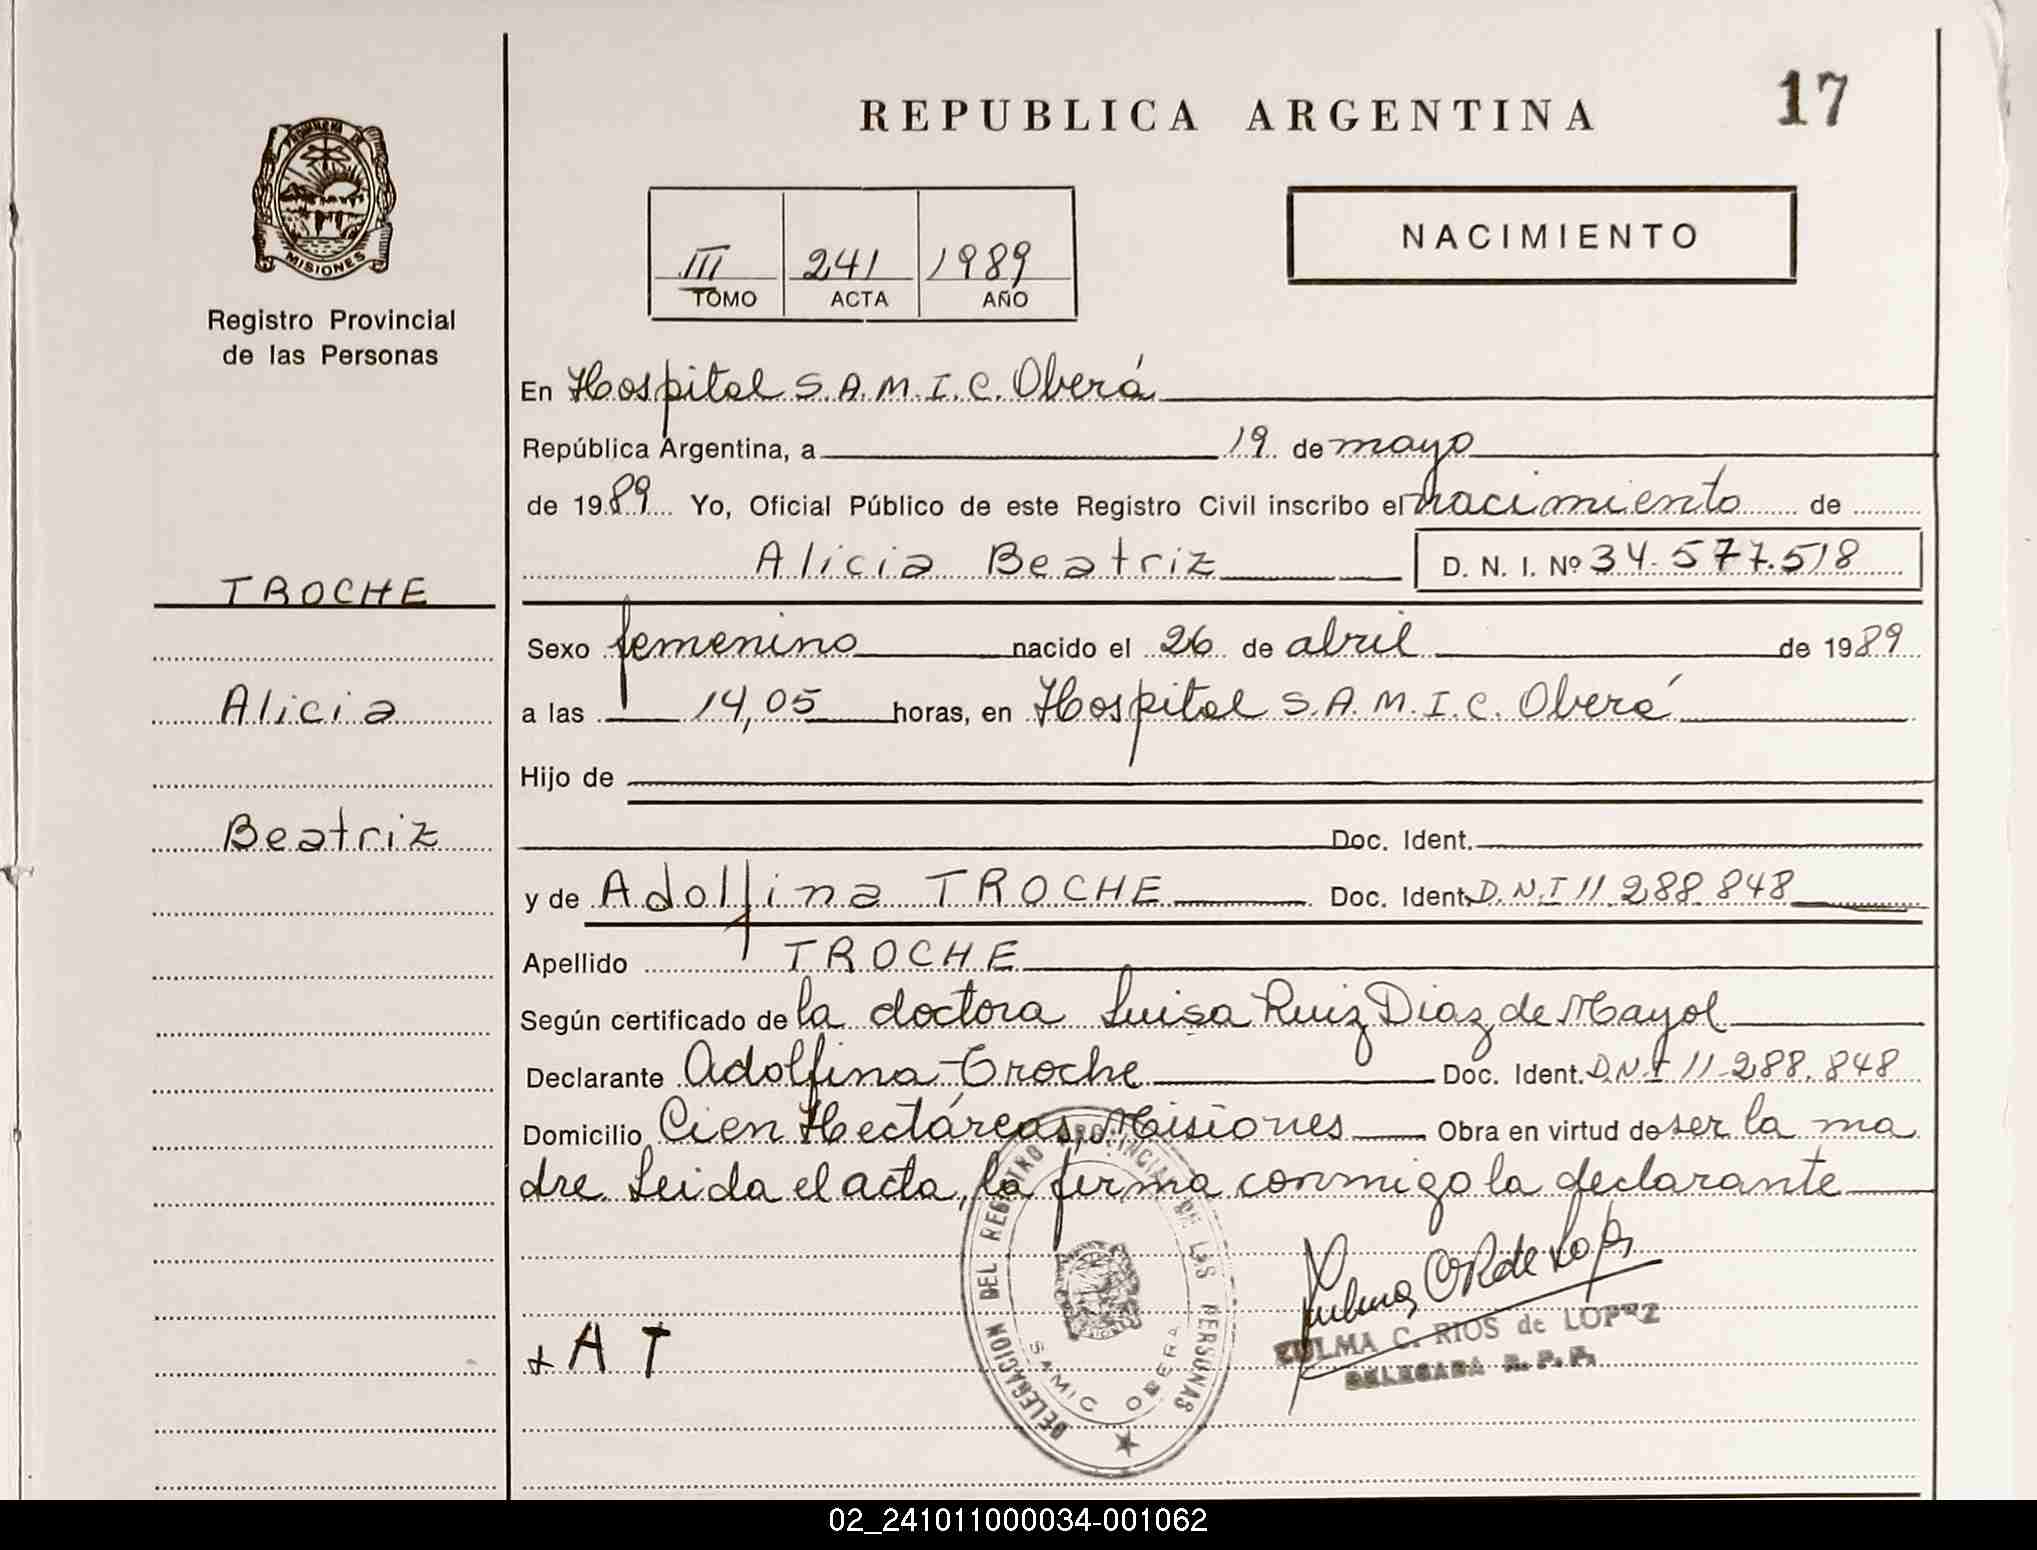 REPUBLICA ARGENTINA
17
PROVINCIA DE
MISIONES
Registro Provincial
de las Personas
III 241 1989
TOMO ACTA AÑO
NACIMIENTO
En Hospital S.A.M.I.C. Oberá
República Argentina, a 19 de mayo
de 1989 Yo, Oficial Público de este Registro Civil inscribo el nacimiento de
Alicia Beatriz D. N. I. Nº 34.577.518
TROCHE
Alicia
Beatriz
Sexo femenino nacido el 26 de abril de 1989
a las 14,05 horas, en Hospital S.A.M.I.C. Oberá
Hijo de
Doc. Ident.
y de Adolfina TROCHE Doc. Ident. D.N.I 11.288.848
Apellido TROCHE
Según certificado de la doctora Luisa Ruiz Diaz de Mayol
Declarante Adolfina Troche Doc. Ident. D.N.I 11.288.848
Domicilio Cien Hectáreas, Misiones Obra en virtud de ser la ma
dre Leida el acta, la firma conmigo la declarante
DELEGACION DEL REGISTRO PROVINCIAL DE LAS PERSONAS
SAMIC OBERA
+ A T
Zulma C R de Lopez
ZULMA C. RIOS de LOPEZ
DELEGADA R. P. P.
02_241011000034-001062